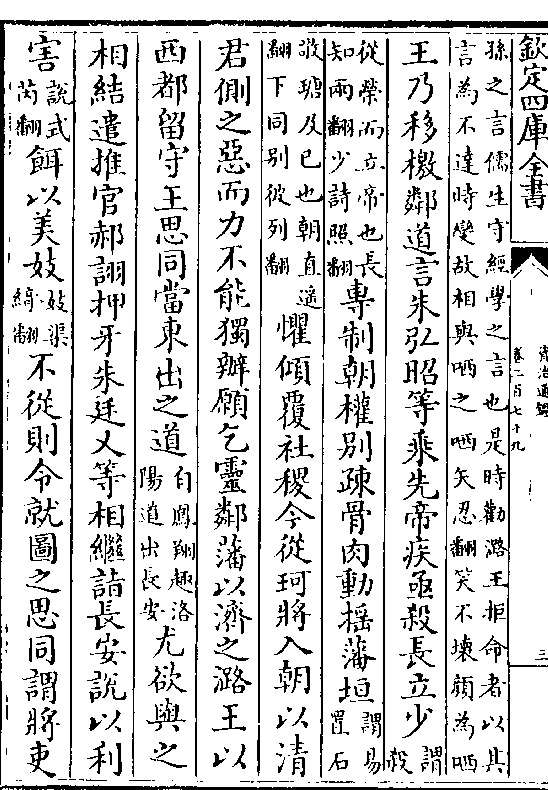 欽定四庫全書
資治通鑑
卷二百七十九
三
孫之言儒生守經學之言也是時勸潞王拒命者以其
言為不達時變故相與哂之哂矢忍翻笑不壞顔為哂
王乃移檄鄰道言朱弘昭等乘先帝疾亟殺長立少謂殺
從榮而立帝也長知兩翻少詩照翻專制朝權别疎骨肉動揺藩垣謂易置石
敬瑭及已也朝直遥翻下同别彼列翻懼傾覆社稷今從珂將入朝以清
君側之惡而力不能獨辦願乞靈鄰藩以濟之潞王以
西都留守王思同當東出之道自鳳翔趣洛陽道出長安尤欲與之
相結遣推官郝詡押牙朱廷乂等相繼詣長安説以利
害説式芮翻餌以美妓妓渠綺翻不從則令就圖之思同謂將吏